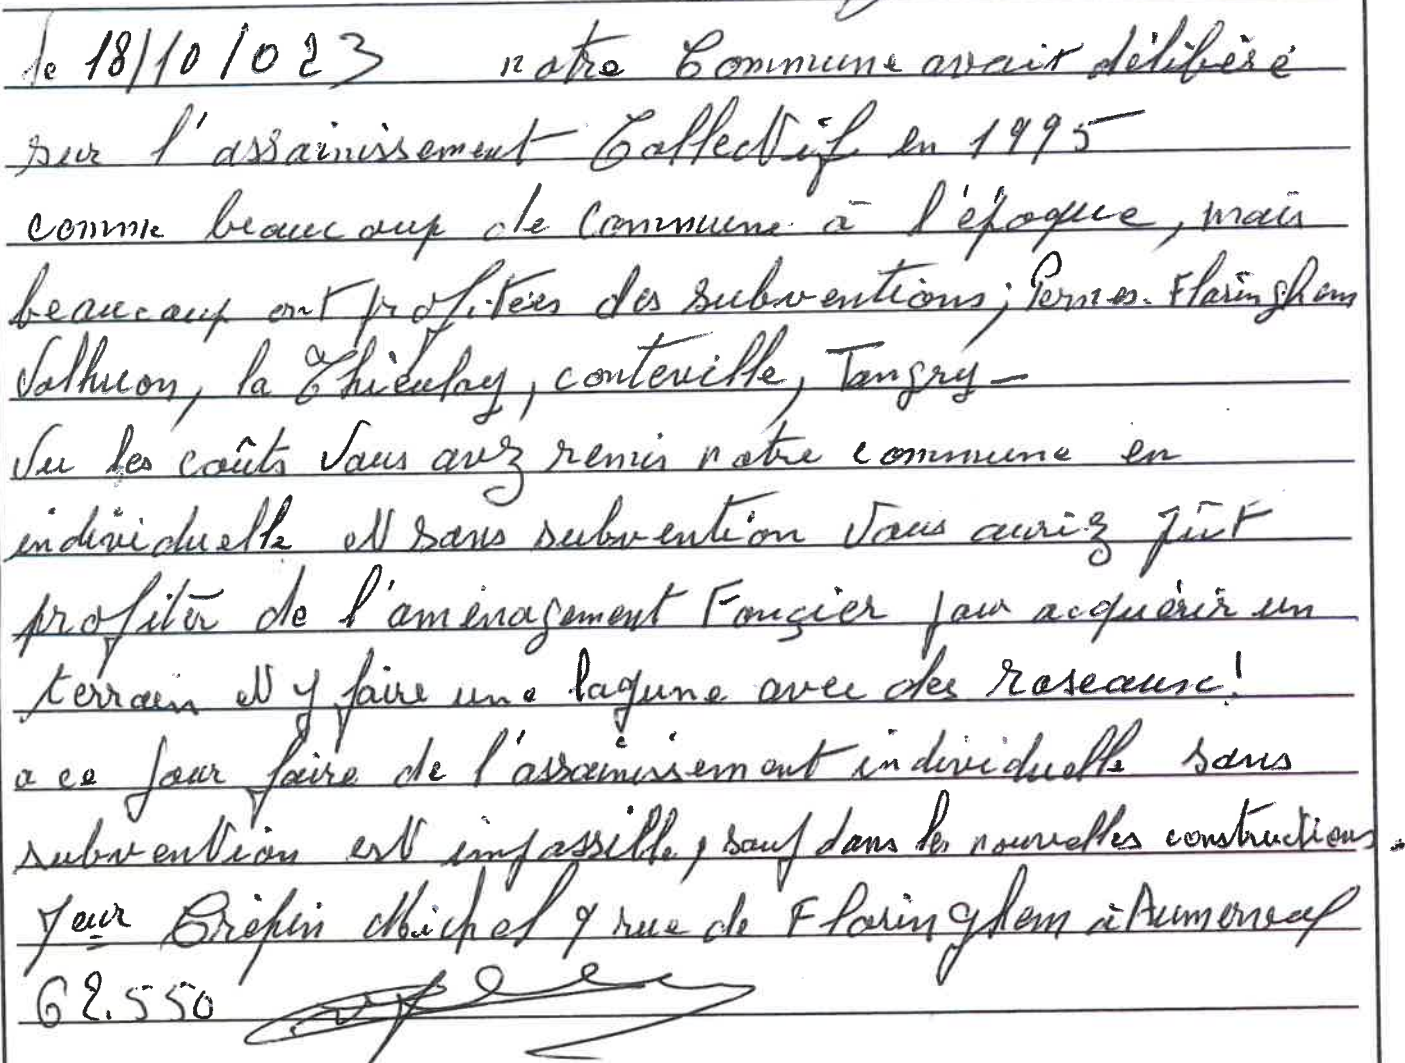 le 18/10/023 notre Commune avait délibéré
sur l'assainissement Collectif en 1995
comme beaucoup de Commune à l'époque, mais
beaucoup ont profitées des subventions; Pernes. Floringhem
Valhuon, la Thieuloy, conteville, Tangry-
Vu les coûts Vous avez remis notre commune en
individuelle et sans subvention Vous auriez pût
profiter de l'aménagement Foncier pour acquérir un
terrain et y faire une lagune avec des roseaux!
a ce jour faire de l'assainissement individuelle sans
subvention est impossible, sauf dans les nouvelles constructions.
Meur Crépin Michel 9 rue de Floringhem à Aumerval
62.550